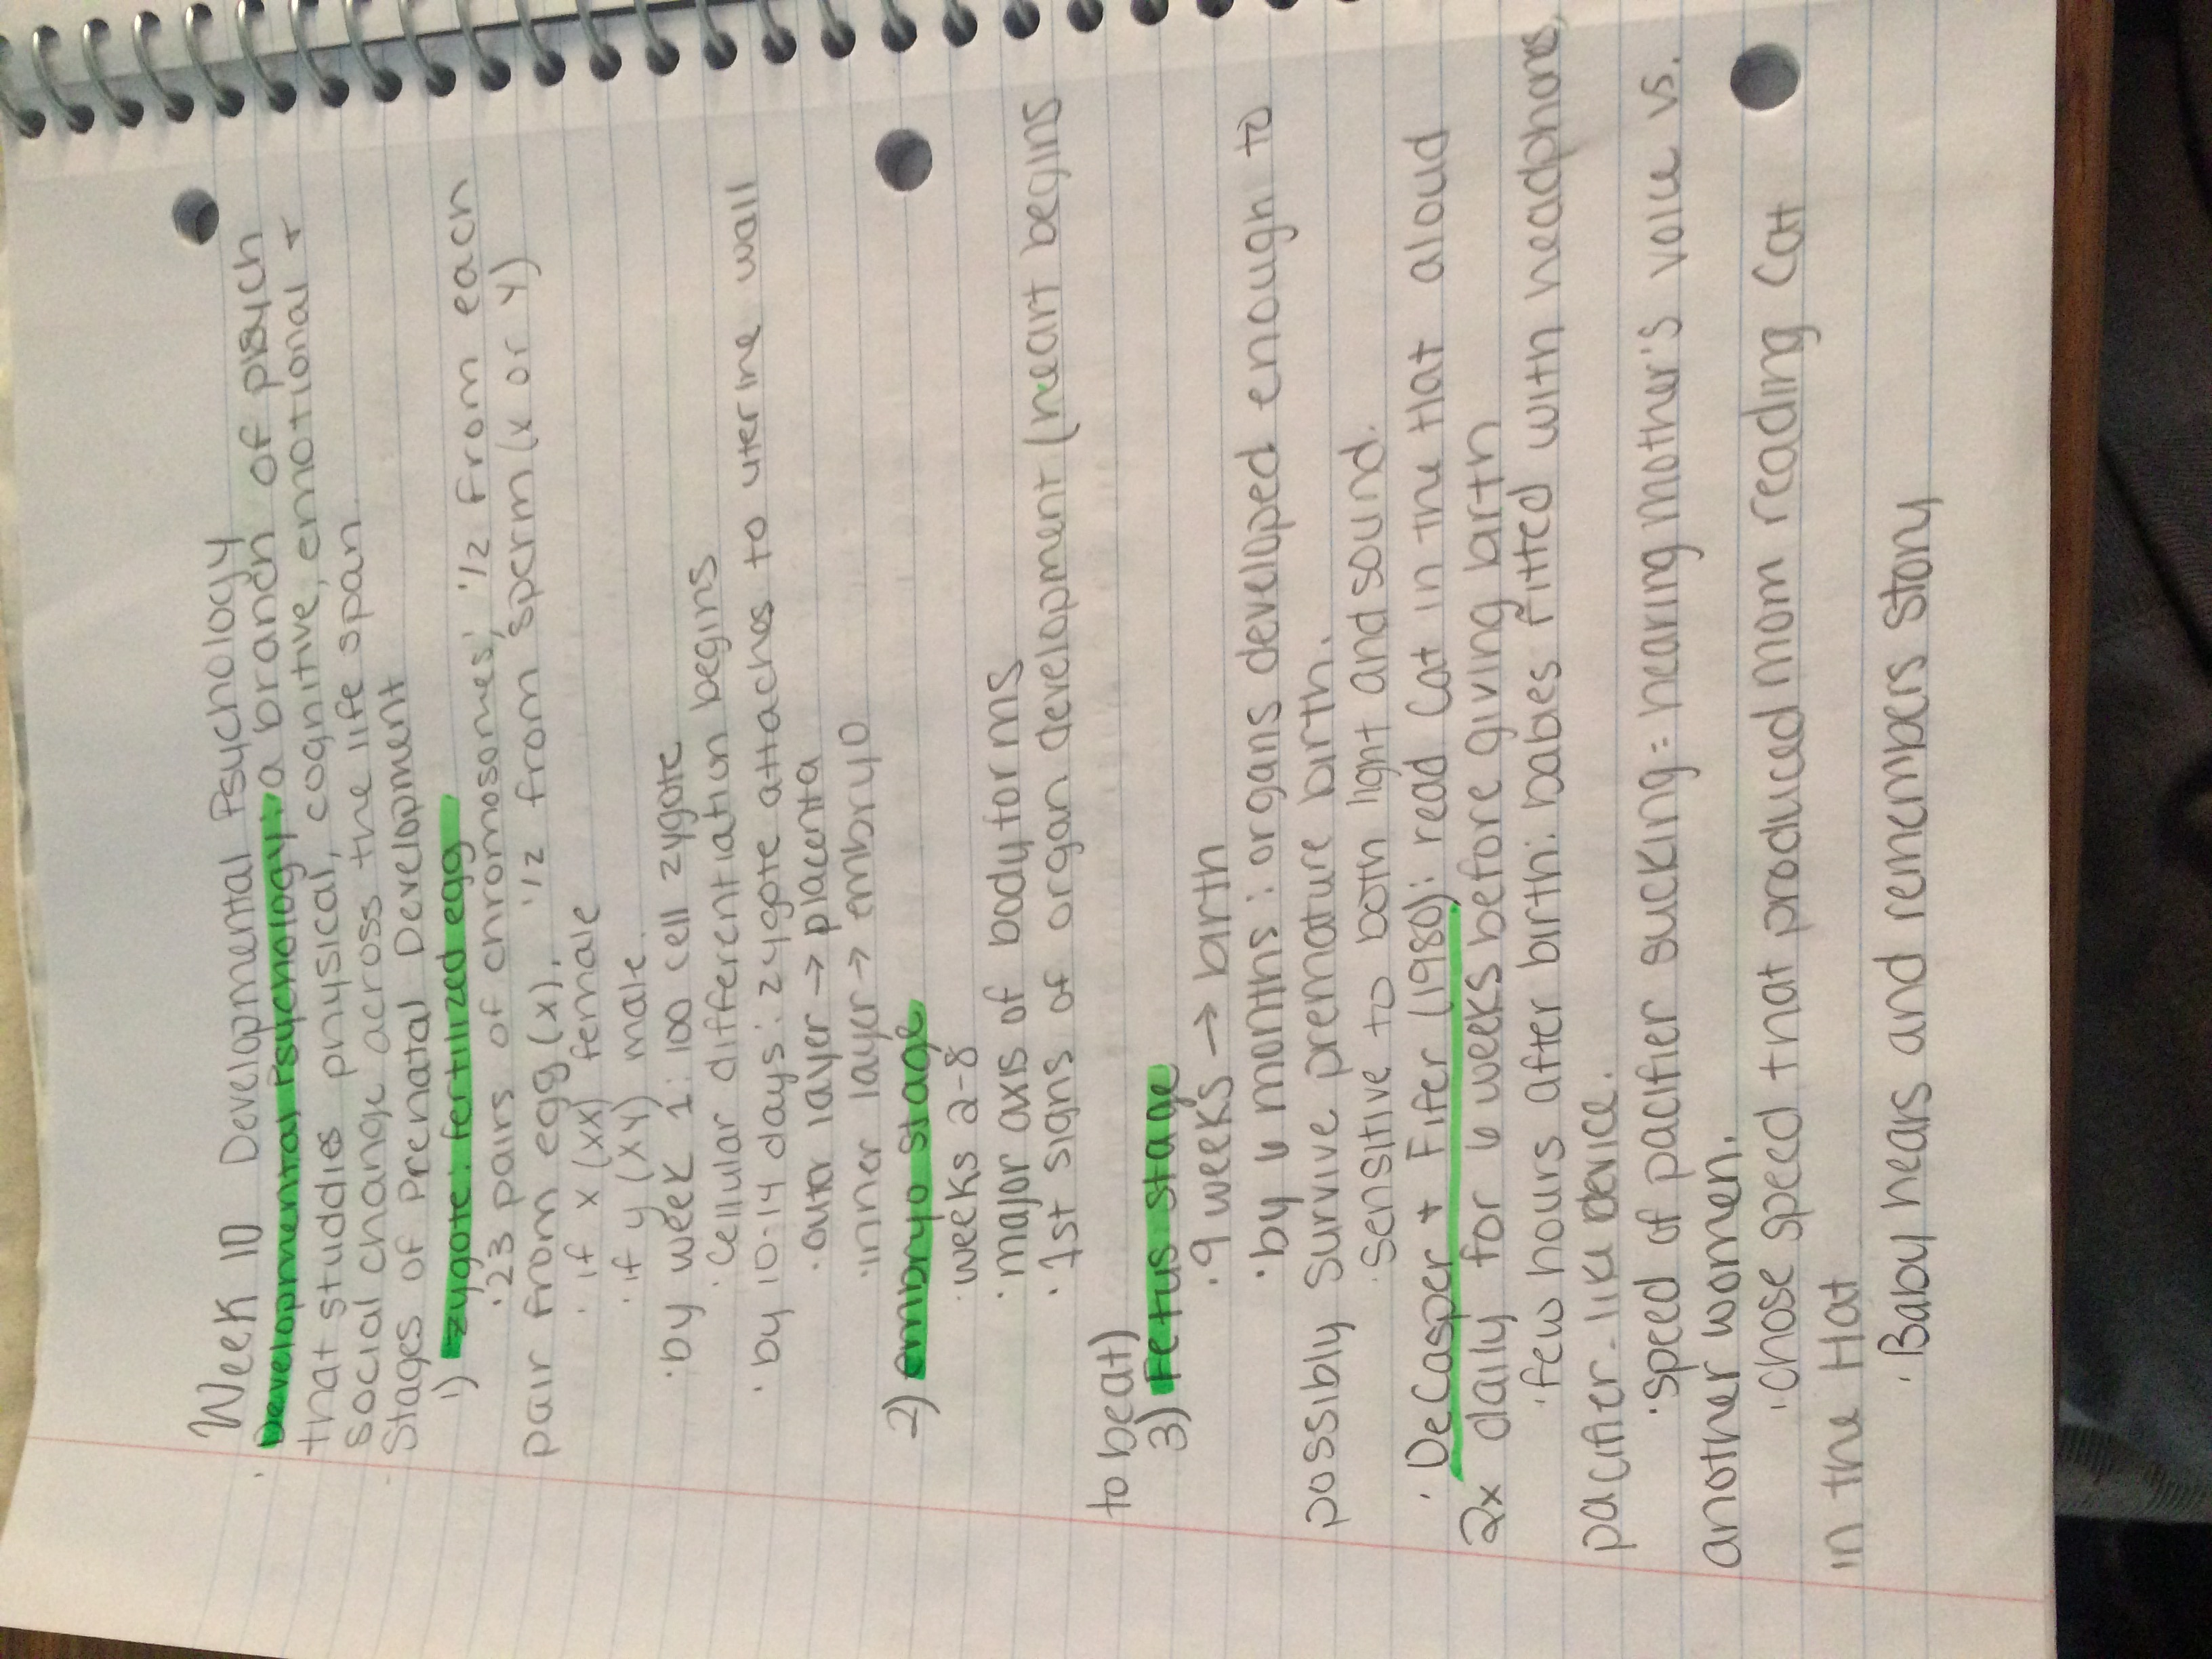 Week 10 Developmental Psychology
· Developmental Psychology: a branch of psych
that studies physical, cognitive, emotional +
social change across the life span.
· Stages of Prenatal Development
1) zygote: fertilized egg
· 23 pairs of chromosomes; 1/2 from each
pair from egg (x), 1/2 from sperm (x or y)
· if x (xx) female
· if y (xy) male.
· by week 1: 100 cell zygote
· Cellular differentiation begins
· by 10-14 days: zygote attaches to uterine wall
· outer layer → placenta
· inner layer → embryo
2) embryo stage
· weeks 2-8
· major axis of body forms
· 1st signs of organ development (heart begins
to beat)
3) Fetus stage
· 9 weeks → birth
· by 6 months: organs developed enough to
possibly survive premature birth.
· sensitive to both light and sound.
· DeCasper + Fifer (1980): read Cat in the Hat aloud
2x daily for 6 weeks before giving birth
· few hours after birth: babies fitted with headphones,
pacifier-like device.
· speed of pacifier sucking = hearing mother's voice vs.
another women.
· chose speed that produced mom reading Cat
in the Hat
· Baby hears and remembers story